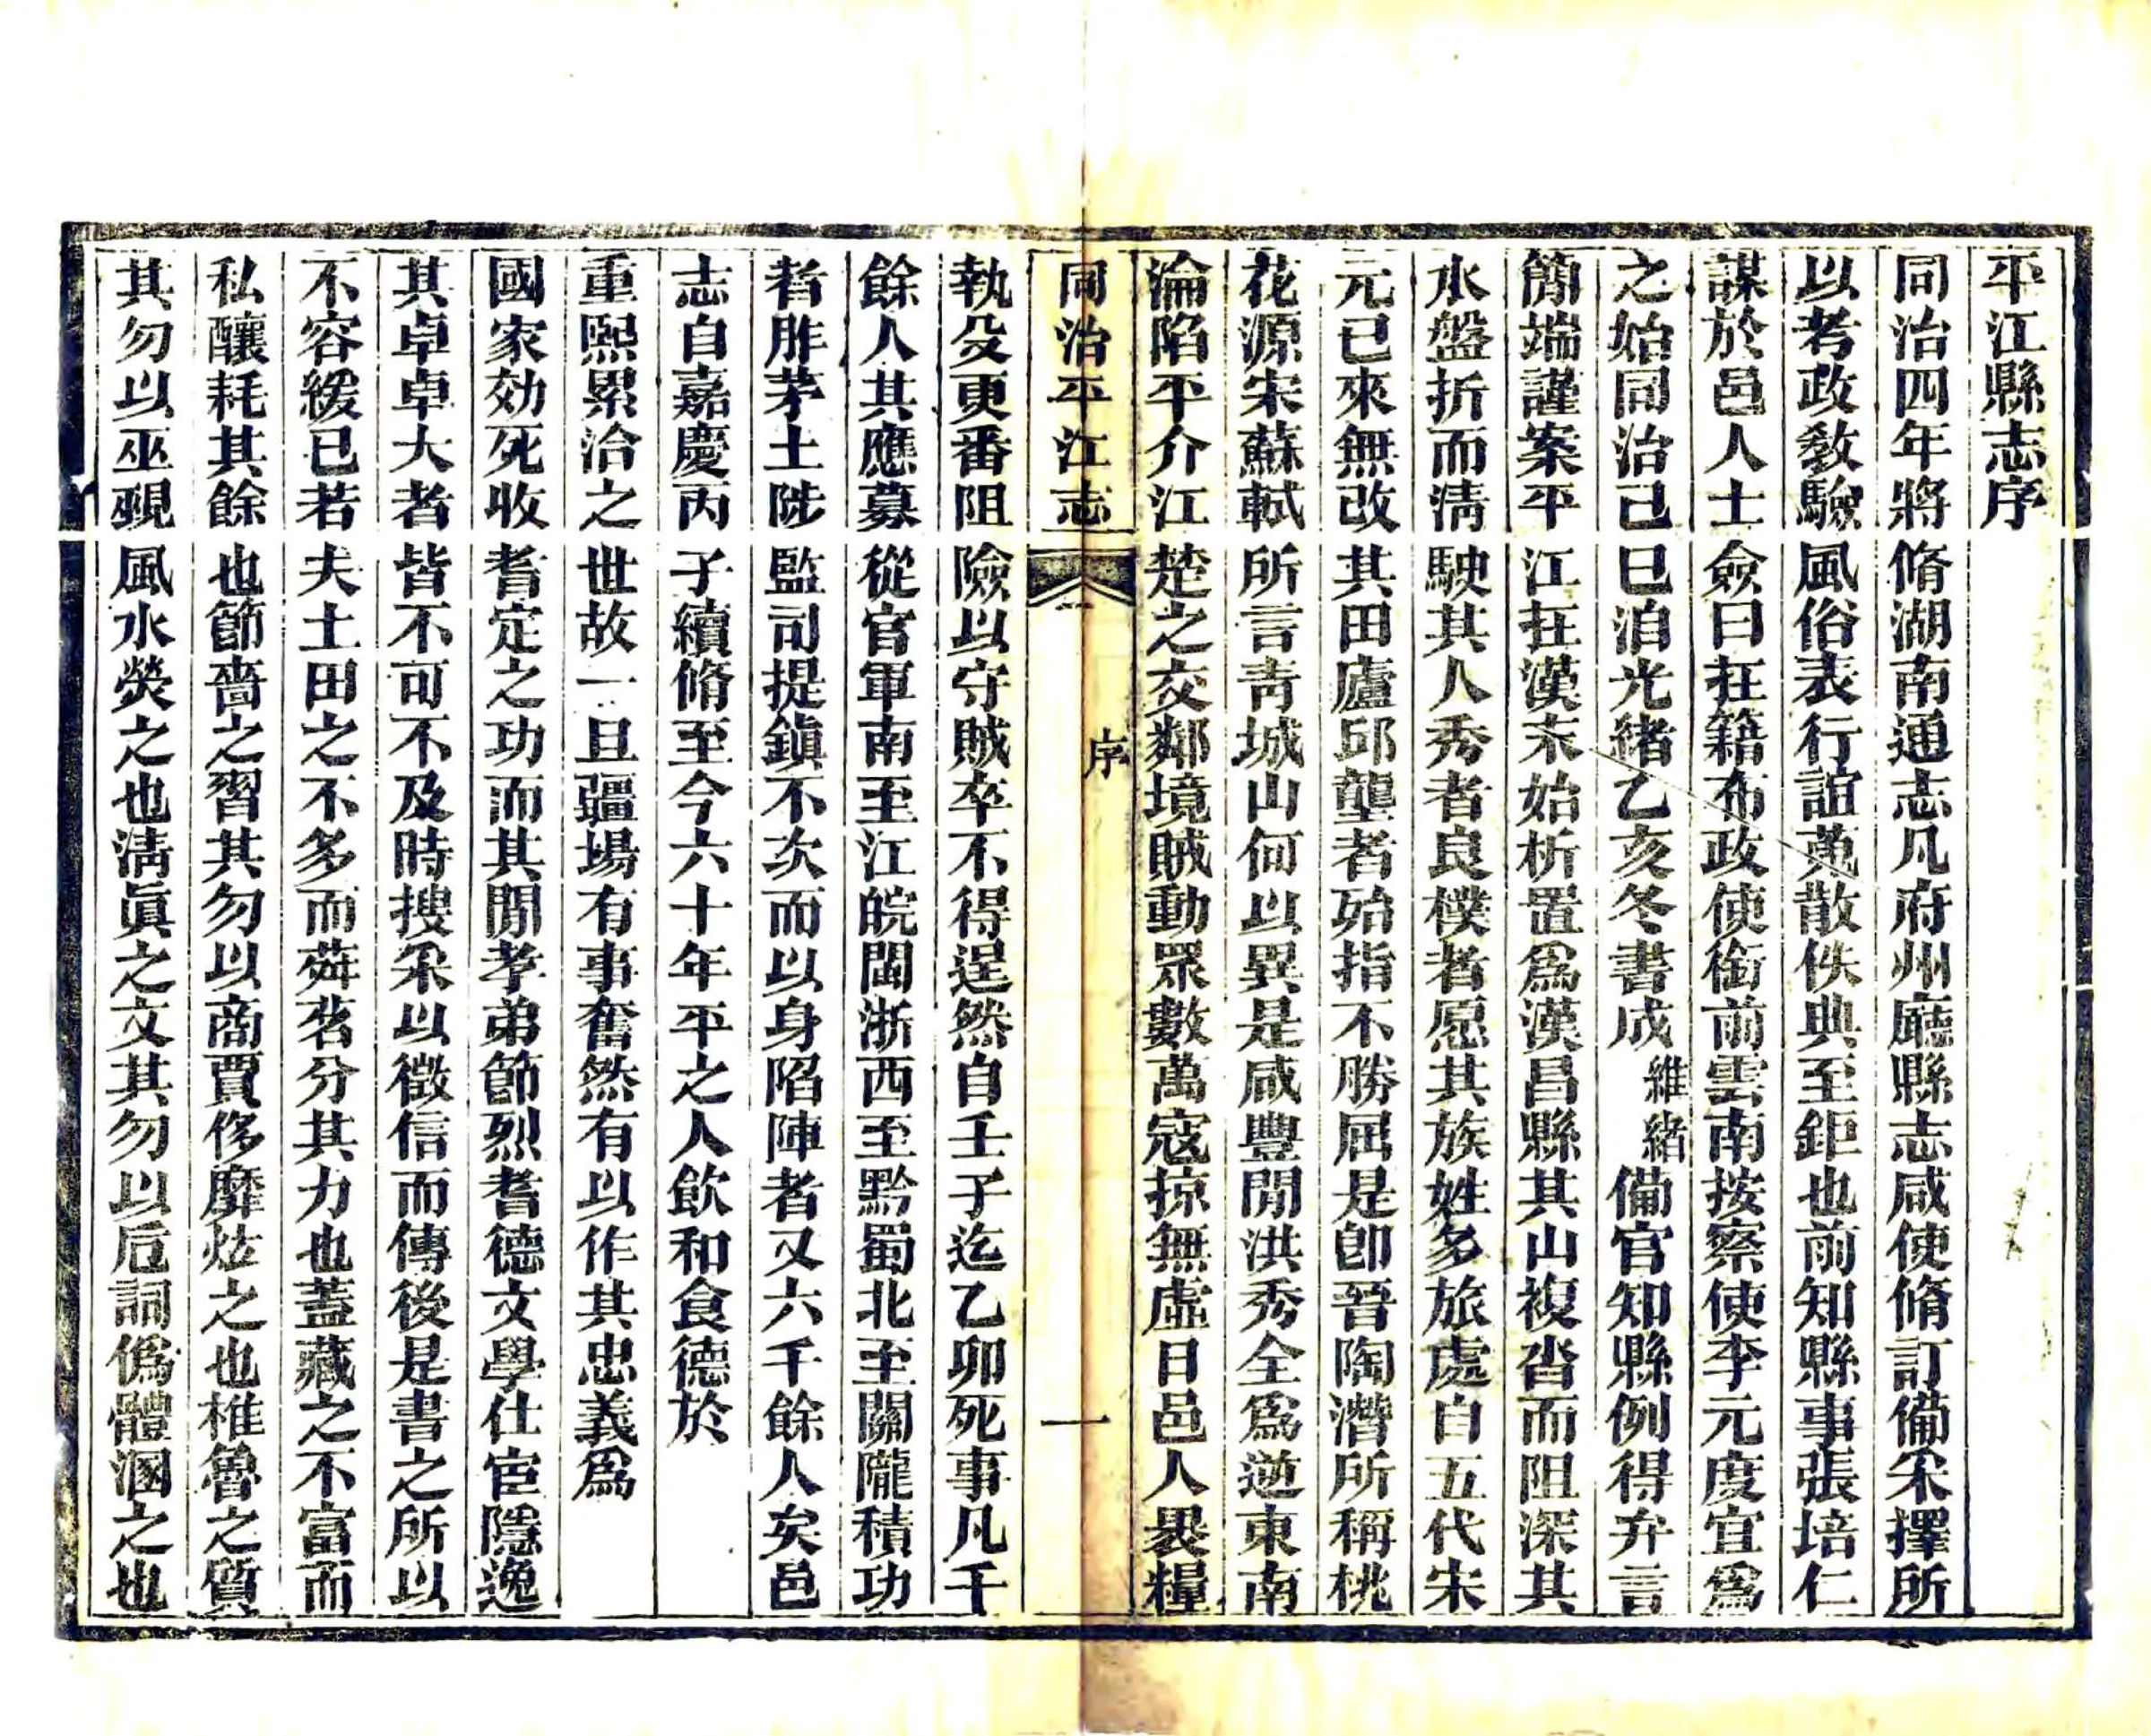 平江縣志序
同治四年將脩湖南通志凡府州廳縣志咸使脩訂備采擇所
以考政教驗風俗表行誼蒐散佚典至鉅也前知縣事張培仁
謀於邑人士僉曰在籍布政使銜前雲南按察使李元度宜爲
之始同治己巳洎光緒乙亥冬書成維緒備官知縣例得弁言
簡端謹案平江在漢末始析置爲漢昌縣其山複沓而阻深其
水盤折而清駛其人秀者良樸者愿其族姓多旅處自五代宋
元已來無改其田廬邱壟者殆指不勝屈是卽晉陶潛所稱桃
花源宋蘇軾所言青城山何以異是咸豐閒洪秀全爲逆東南
淪陷平介江楚之交鄰境賊動眾數萬寇掠無虛日邑人裹糧
同治平江志
序
一
執殳更番阻險以守賊卒不得逞然自壬子迄乙卯死事凡千
餘人其應募從官軍南至江皖閩浙西至黔蜀北至關隴積功
者胙茅土陟監司提鎮不次而以身陷陣者又六千餘人矣邑
志自嘉慶丙子續脩至今六十年平之人飲和食德於
重熙累洽之世故一旦疆場有事奮然有以作其忠義爲
國家効死收耆定之功而其閒孝弟節烈耆德文學仕宦隱逸
其卓卓大者皆不可不及時搜采以徵信而傳後是書之所以
不容緩已若夫土田之不多而荈茗分其力也蓋藏之不富而
私釀耗其餘也節嗇之習其勿以商賈侈靡炫之也椎魯之質
其勿以巫覡風水熒之也清眞之文其勿以卮詞僞體溷之也